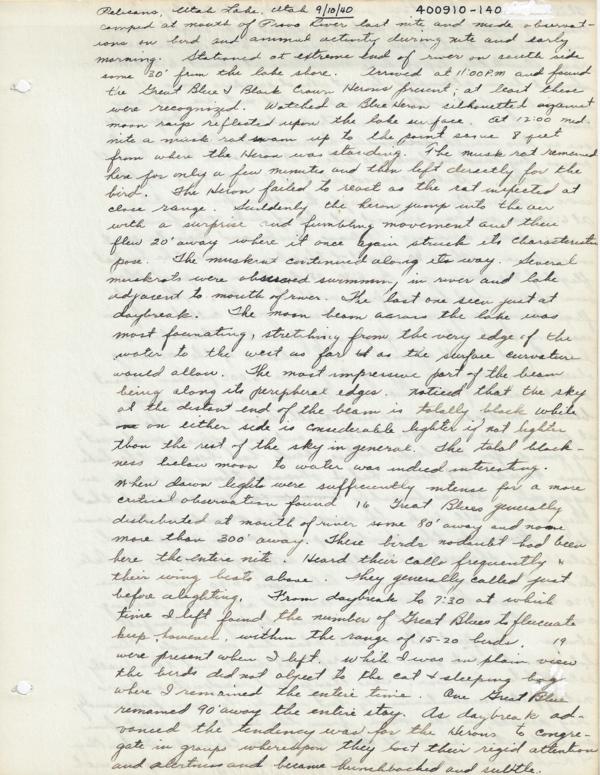 Pelicans, Utah Lake, Utah 9/10/40 400910-140
camped at mouth of Provo River last nite and made observat-
ions on bird and animal activity during nite and early
morning. Stationed at extreme end of river on south side
some 30' from the lake shore. Arrived at 11:00 P.M and found
the Great Blue & Black Crown Herons present, at least these
were recognized. Watched a Blue Heron silhouetted against
moon rays reflected upon the lake surface. At 12:00 mid-
nite a musk rat swam up to the point some 8 feet
from where the Heron was standing. The musk rat remained
here for only a few minutes and then left directly for the
bird. The Heron failed to react as the rat inspected at
close range. Suddenly the heron jump into the air
with a surprise and fumbling movement and then
flew 20' away where it once again struck its characteristic
pose. The muskrat continued along its way. Several
muskrats were observed swimmin in river and lake
adjacent to mouth of river. The last one seen just at
daybreak. The moon beam across the lake was
most facinating, stretching from the very edge of the
water to the west as far as the surface curvature
would allow. The most impressive part of the beam
being along its peripheral edges. noticed that the sky
at the distant end of the beam is totally black while
on either side is considerable lighter if not lighter
than the rest of the sky in general. The total black-
ness below moon to water was indeed interesting.
When dawn lights were sufficiently intense for a more
critical observation found 16 Great Blues generally
distributed at mouth of river some 80' away and none
more than 300' away. These birds nodoubt had been
here the entire nite. Heard their calls frequently &
their wing beats above. They generally called just
before alighting. From daybreak to 7:30 at which
time I left found the number of Great Blues to fluctuate
keep, however, within the range of 15-20 birds. 19
were present when I left. While I was in plain view
the birds did not object to the cot & sleeping bag
where I remained the entire time. One Great Blue
remained 90' away the entire stay. As daybreak ad-
vanced the tendency was for the Herons to congre-
gate in groups whereupon they lost their rigid attention
and alertness and became hunchbacked and subtle.